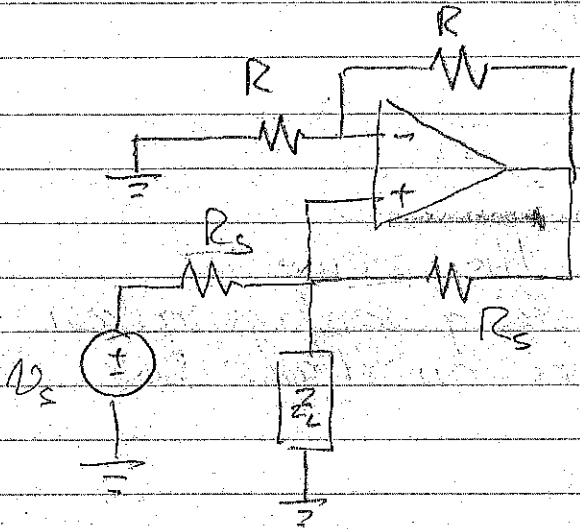 R
R
-
+
Rs
Rs
+
-
Vs
ZL